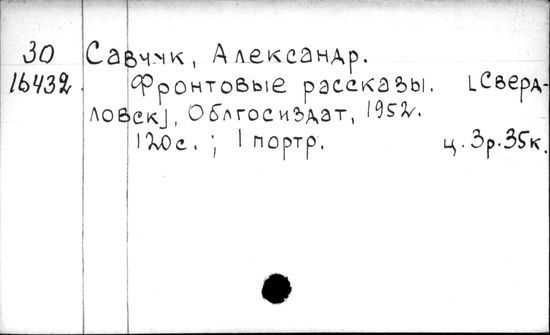 30 Савчук, Александр.
16432 Фронтовые рассказы. [Сверд-
ловск], Облгосиздат, 1952.
120с. ; 1 портр. ц. 3р. 35к.